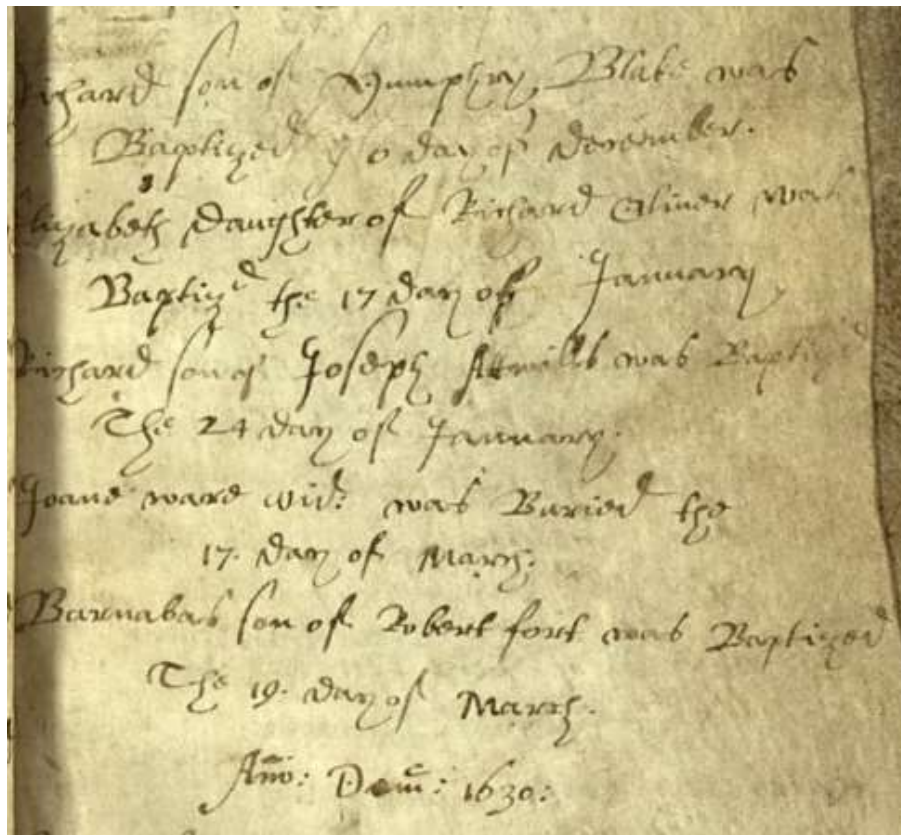 Richard son of Humphry Blake was
Baptized ye 6 day of December.
Elizabeth daughter of Richard Oliver was
Baptizd the 17 day of January
Richard son of Joseph was Baptized
The 24 day of January.
Joane ware wid: was Buried the
17. day of March.
Barnabas son of Robert fort was Baptized
The 19. day of March.
Ano: Dom: 1630: